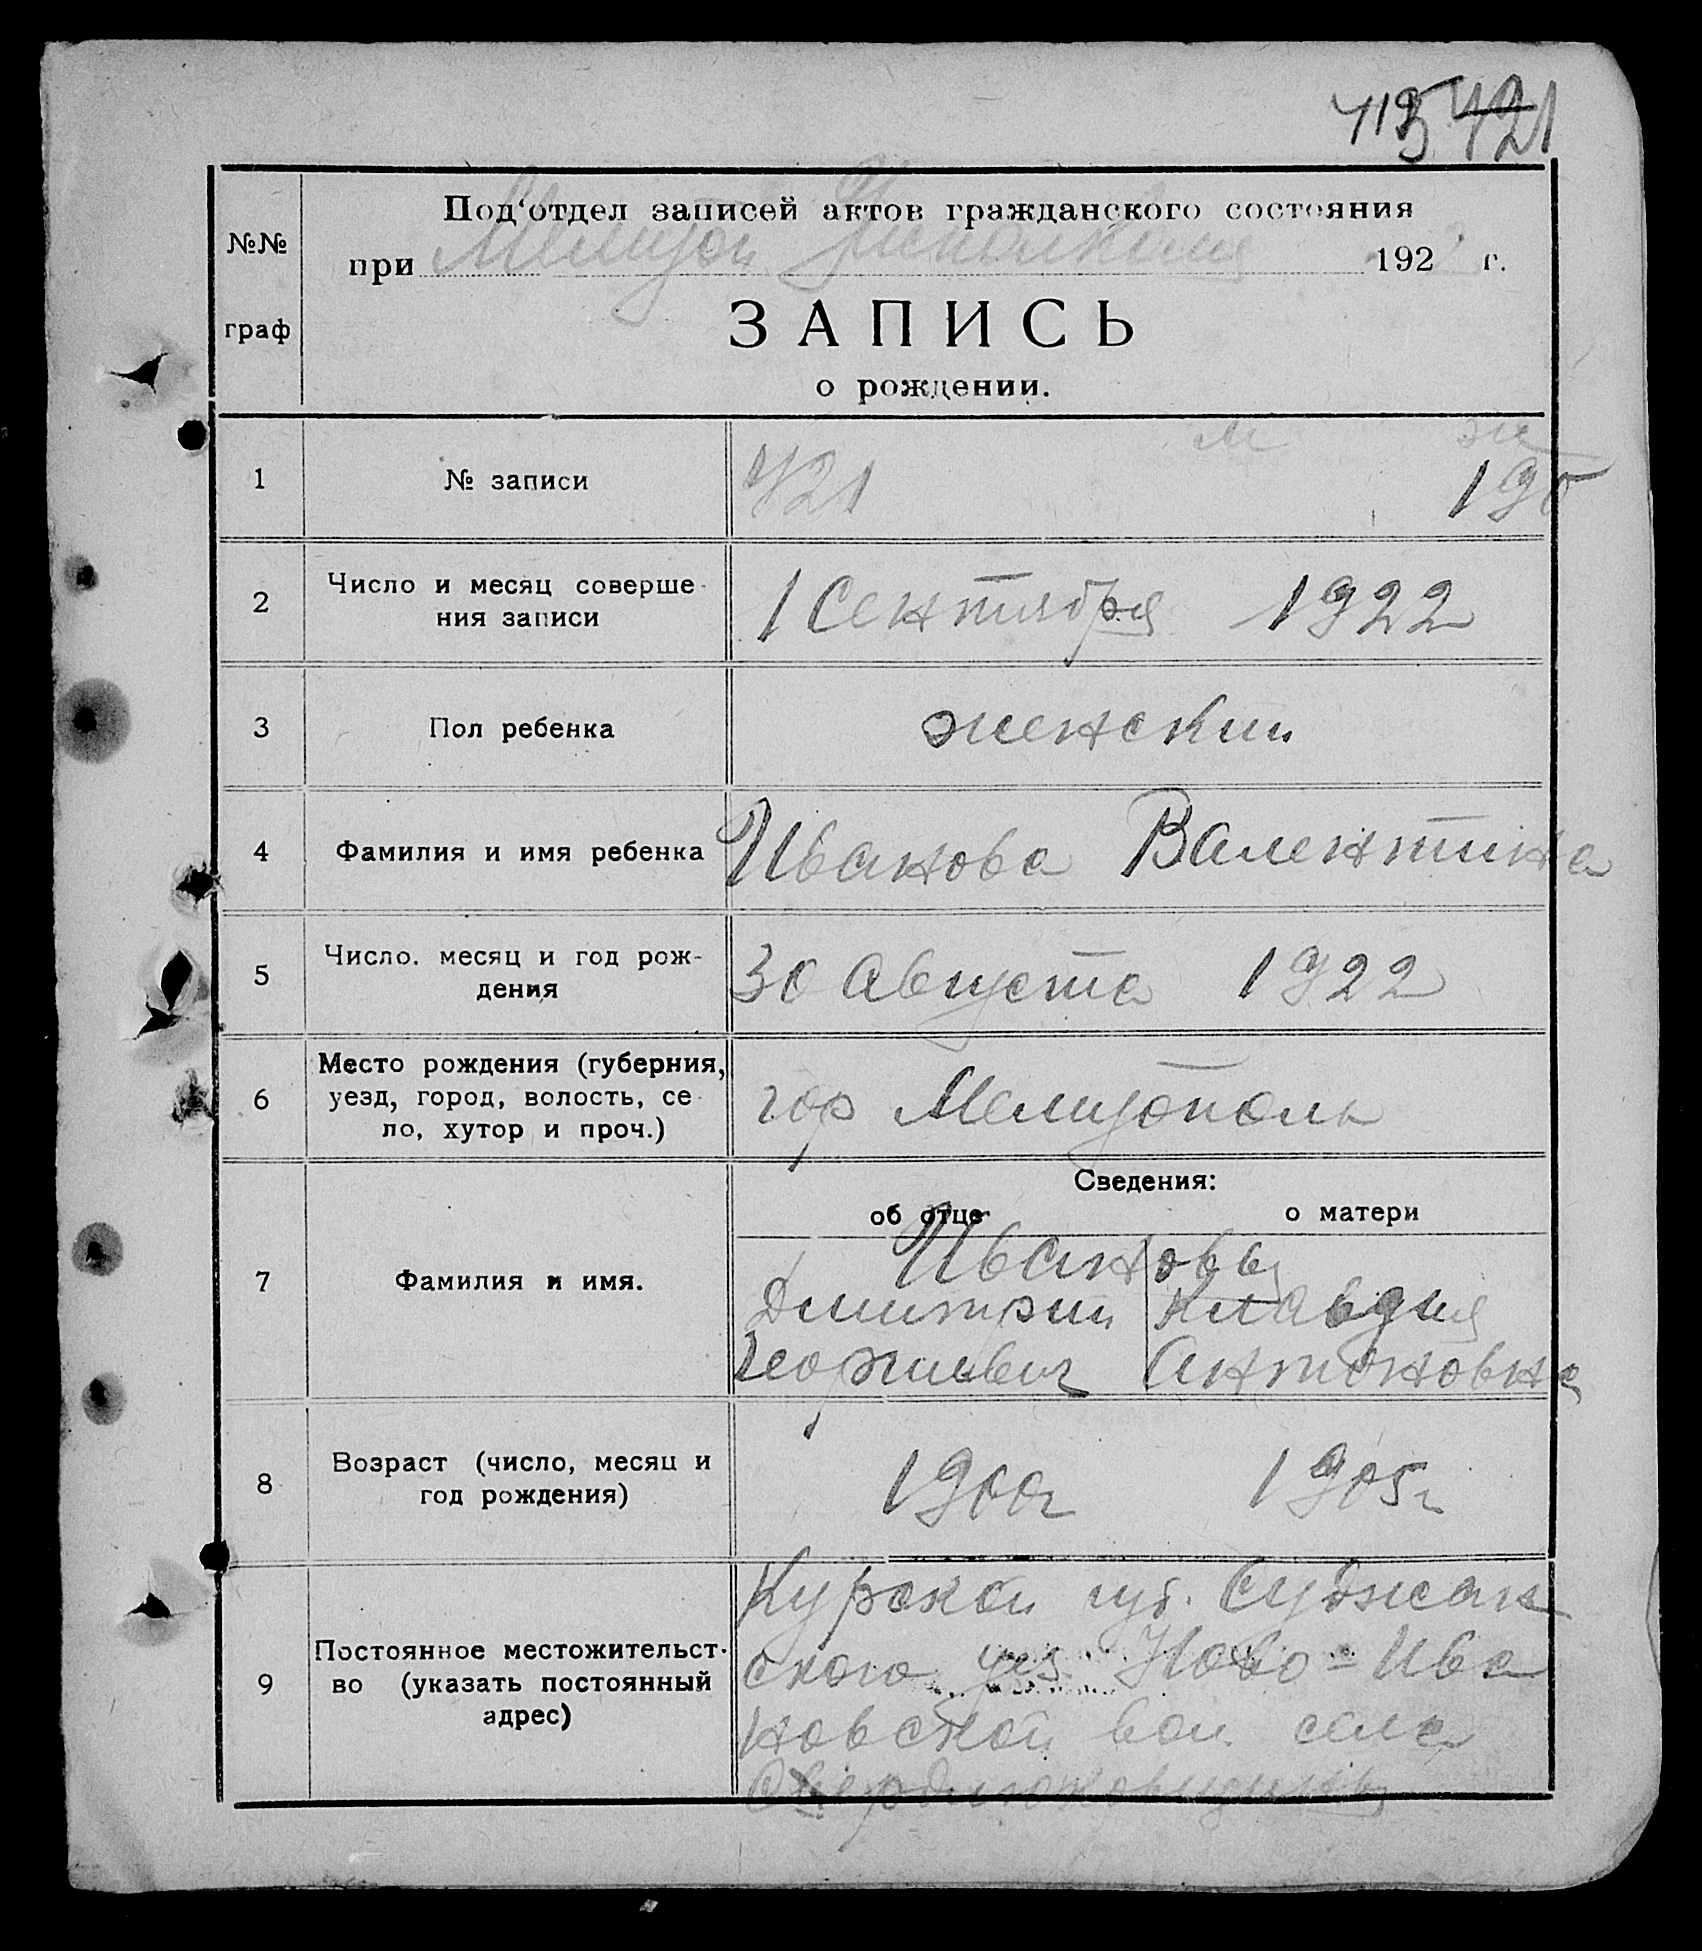 421
Под‘отдел записей актов гражданского состояния
при 192 г.
№№
граф
ЗАПИСЬ
о рождении.
м ж
1 № записи 421 190
2 Число и месяц соверше-
ния записи 1 Сентября 1922
3 Пол ребенка женский
4 Фамилия и имя ребенка Иванова Валентина
5 Число. месяц и год рож-
дения 30 Августа 1922
6 Место рождения (губерния,
уезд, город, волость, се-
ло, хутор и проч.) гор Мелитополь
Сведения:
об отце о матери
7 Фамилия и имя. Ивановы
Димитрий Клавдия
Георгиевич Антоновна
8 Возраст (число, месяц и
год рождения) 1900г 1905г
9 Постоянное местожительст-
во (указать постоянный
адрес)
Курской губ. Суджан
ского уез. Ново-Ива
новской вол. села